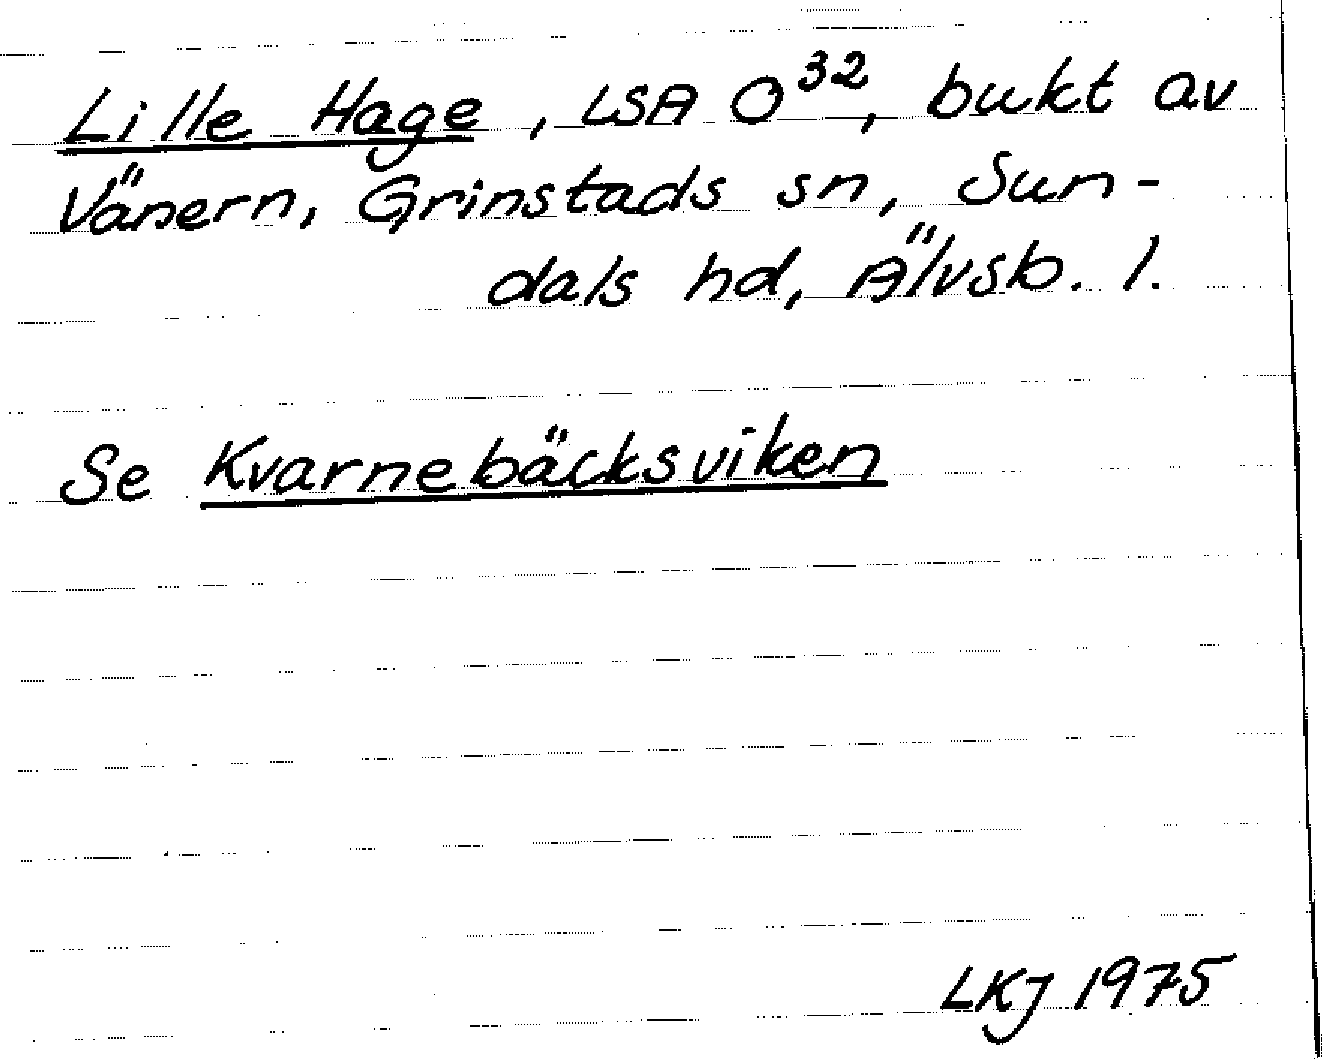 Lille Hage, LSA O³², bukt av
Vänern, Grinstads sn, Sun-
dals hd, Älvsb. l.
Se Kvarnebäcksviken
LKJ 1975